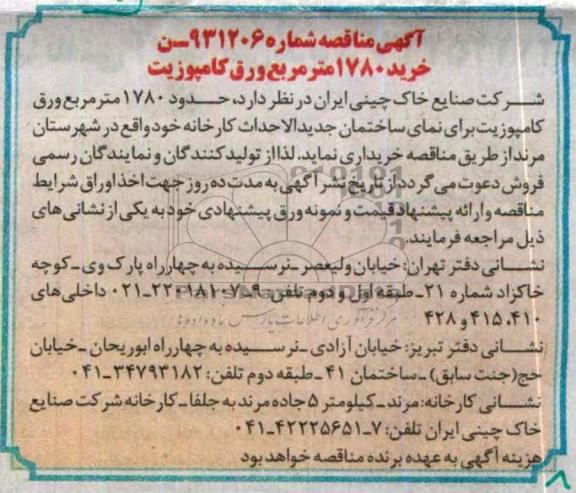 آگهی مناقصه شماره ۹۳۱۲۰۶-ن
خرید ۱۷۸۰ مترمربع ورق کامپوزیت
شرکت صنایع خاک چینی ایران در نظر دارد، حدود ۱۷۸۰ مترمربع ورق
کامپوزیت برای نمای ساختمان جدیدالاحداث کارخانه خود واقع در شهرستان
مرند از طریق مناقصه خریداری نماید. لذا از تولیدکنندگان و نمایندگان رسمی
فروش دعوت می گردد از تاریخ نشر آگهی به مدت ده روز جهت اخذ اوراق شرایط
مناقصه و ارائه پیشنهاد قیمت و نمونه ورق پیشنهادی خود به یکی از نشانی های
ذیل مراجعه فرمایند.
نشانی دفتر تهران: خیابان ولیعصر - نرسیده به چهارراه پارک وی - کوچه
خاکزاد شماره ۲۱ - طبقه اول و دوم تلفن: ۹-۲۲۰۱۸۱۰۷-۰۲۱ داخلی های
۴۱۰، ۴۱۵ و ۴۲۸
نشانی دفتر تبریز: خیابان آزادی - نرسیده به چهارراه ابوریحان - خیابان
حج (جنت سابق) - ساختمان ۴۱ - طبقه دوم تلفن: ۳۴۷۹۳۱۸۲-۰۴۱
نشانی کارخانه: مرند - کیلومتر ۵ جاده مرند به جلفا - کارخانه شرکت صنایع
خاک چینی ایران تلفن: ۷-۴۲۲۲۵۶۵۱-۰۴۱
هزینه آگهی به عهده برنده مناقصه خواهد بود